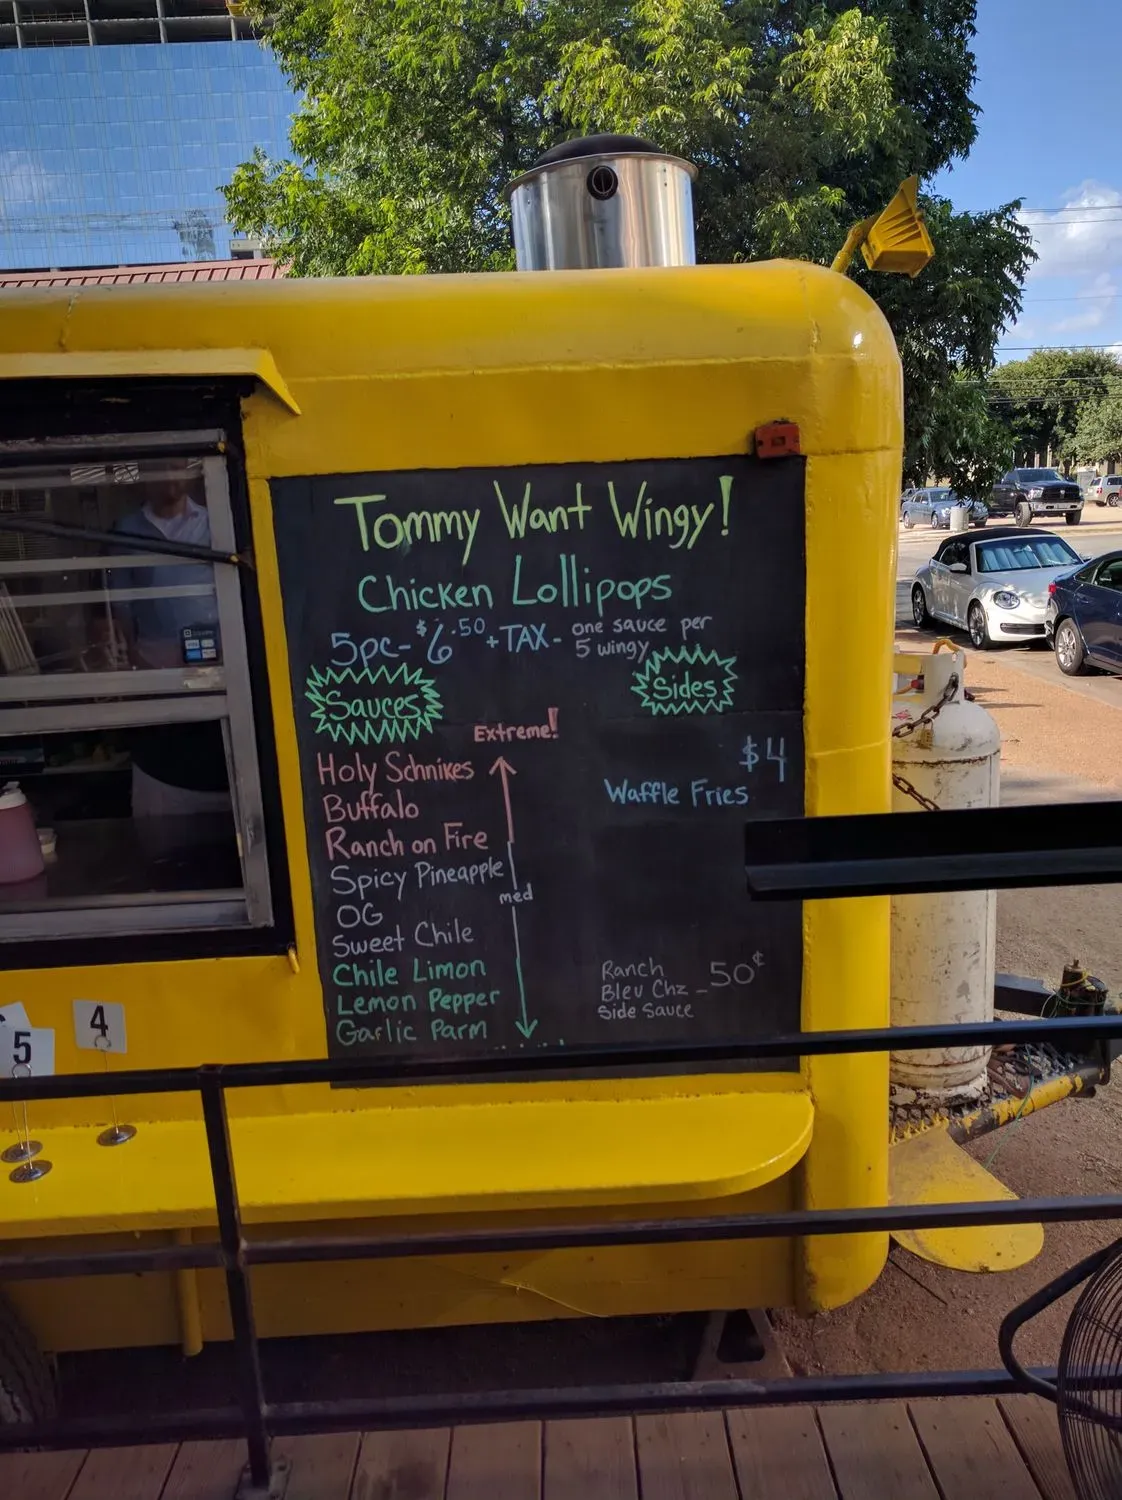 Tommy Want Wingy!
Chicken Lollipops
5pc- $6.50 + TAX - one sauce per
5 wingy
Sauces
Sides
Extreme!
$4
Holy Schnikes
Waffle Fries
Buffalo
Ranch on Fire
Spicy Pineapple
med
OG
Sweet Chile
Chile Limon
Lemon Pepper
Garlic Parm
Ranch
Bleu Chz - 50¢
Side Sauce
4
5